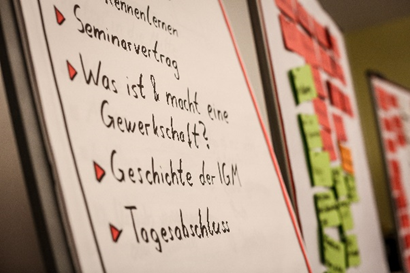 Kennenlernen
Seminarvertrag
Was ist & macht eine
Gewerkschaft?
Geschichte der IGM
Tagesabschluss